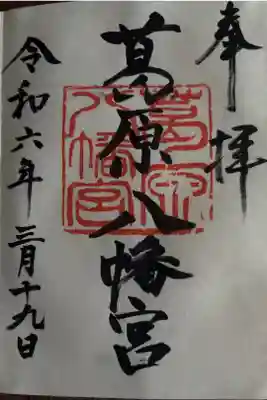 奉拝
葛原八幡宮
葛原
八幡宮
令和六年三月十九日